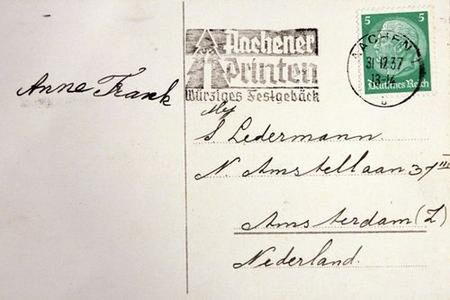 Anne Frank
Aachener
Printen
Würziges Festgebäck
5 5
Deutsches Reich
AACHEN
31.12.37
Mej
S Ledermann
N Amstellaan 37 III
Amsterdam (Z)
Nederland.